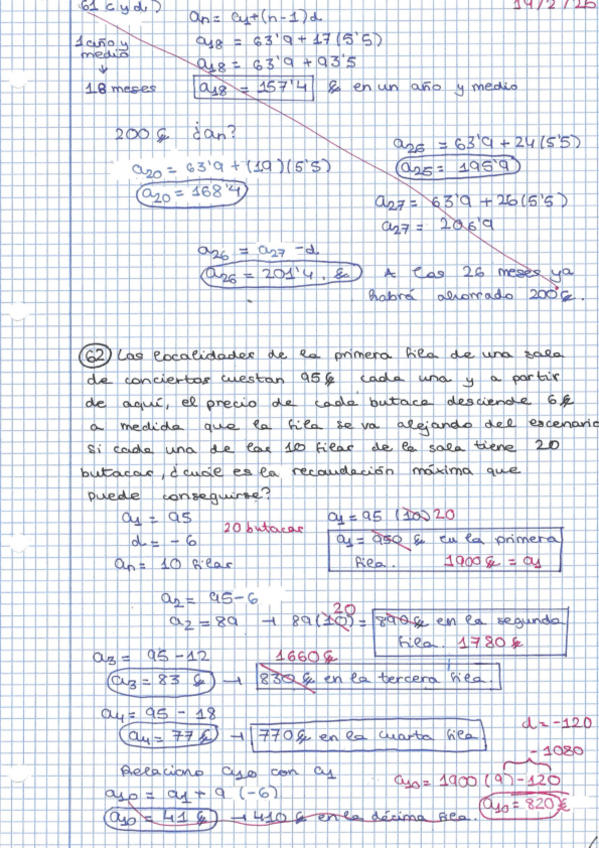 61 c y d.)
19/2/26
an = a1+(n-1)d
1 año y medio
↓
18 meses
a18 = 63'9 + 17(5'5)
a18 = 63'9 + 93'5
a18 = 157'4 € en un año y medio
200 € ¿an?
a20 = 63'9 + (19)(5'5)
a20 = 168'4
a25 = 63'9 + 24(5'5)
a25 = 195'9
a27 = 63'9 + 26(5'5)
a27 = 206'9
a26 = a27 - d
a26 = 201'4. €
A los 26 meses ya
habrá ahorrado 200€.
62 Las localidades de la primera fila de una sala
de conciertos cuestan 95€ cada una y a partir
de aquí, el precio de cada butaca desciende 6€
a medida que la fila se va alejando del escenario
Si cada una de las 10 filas de la sala tiene 20
butacas, ¿cuál es la recaudación máxima que
puede conseguirse?
a1 = 95
d = -6
an = 10 filas
20 butacas
a1 = 95 (10) 20
a1 = 950 € en la primera
fila. 1900€ = a1
a2 = 95-6
a2 = 89 → 89(10) = 890€ en la segunda
20
fila. 1780€
a3 = 95-12
a3 = 83 € → 830€ en la tercera fila.
1660€
a4 = 95 - 18
a4 = 77€ → 770€ en la cuarta fila
d = -120
-1080
Relaciono a10 con a1
a10 = 1900 (9) -120
a10 = a1 + 9 (-6)
a10 = 820€
a10 = 41€ → 410€ en la décima fila.